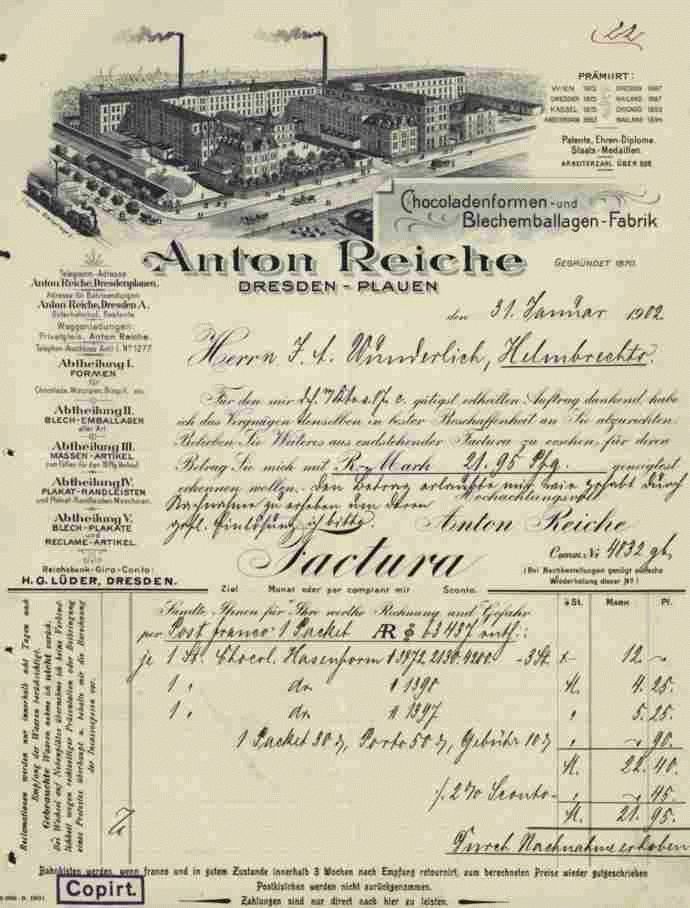 22
PRÄMIIRT:
WIEN 1873 DRESDEN 1887
DRESDEN 1875 MAILAND 1887
KASSEL 1875 CHICAGO 1893
AMSTERDAM 1883 MAILAND 1894
Patente, Ehren-Diplome.
Staats-Medaillen.
ARBEITERZAHL ÜBER
Chocoladenformen- und
Blechemballagen-Fabrik
Anton Reiche
GEGRÜNDET 1870.
DRESDEN - PLAUEN
den 31. Januar 1902
Telegramm-Adresse
Anton Reiche, Dresdenplauen.
Adresse für Bahnsendungen
Anton Reiche, Dresden A.
Waggonladungen:
Privatgleis, Anton Reiche.
Telephon-Anschluss Amt I. No 1277.
Abtheilung I.
FORMEN
für
Chocolade, Marzipan, Bisquit, etc.
Abtheilung II.
BLECH-EMBALLAGEN
aller Art
Abtheilung III.
MASSEN-ARTIKEL
Abtheilung IV.
PLAKAT-RANDLEISTEN
und Plakat-Randleisten Maschinen.
Abtheilung V.
BLECH-PLAKATE
und
RECLAME-ARTIKEL.
Reichsbank-Giro-Conto:
H. G. LÜDER, DRESDEN.
Herrn F. A. Wunderlich, Helmbrechts.
Für den mir gütigst ertheilten Auftrag dankend, habe
ich das Vergnügen denselben in bester Beschaffenheit an Sie abzurichten.
Belieben Sie Weiteres aus endstehender Factura zu ersehen, für deren
Betrag Sie mich mit R.- Mark 21.95 Pfg. geneigtest
erkennen wollen. Den Betrag erlaubte mir wie gehabt durch
Hochachtungsvoll
Nachnahme zu erheben um deren
gefl. Einlösung ich bitte.
Anton Reiche
Factura
Comm. No 4832
(Bei Nachbestellungen genügt einfache
Wiederholung dieser No)
Ziel Monat oder per comptant mit Sconto.
à St. Mark Pf.
Sandte Ihnen für Ihre werthe Rechnung und Gefahr
per Post franco 1 Packet AR 63437 enth.:
je 1 St. Chocol. Hasenform 3972, 2130, 4200. - 3 St. 12.
1 " do. 1398 M. 4.25.
1 " do. 1397 " 5.25.
1 Packet 30, Porto 50, Gebühr 10 " 90.
M. 22.40.
% 2% Sconto " 45.
M. 21.95.
Durch Nachnahme erhoben
Reclamationen werden nur innerhalb acht Tagen nach
Empfang der Waaren berücksichtigt.
Gebrauchte Waaren nehme ich nicht zurück.
Bei Wechsel auf Nebenplätze übernehme ich keine Verbind-
lichkeit wegen rechtzeitiger Präsentation oder Beibringung
eines Protestes überhaupt u. behalte mir die Berechnung
der Incassospesen vor.
Bahnkisten werden, wenn franco und in gutem Zustande innerhalb 3 Wochen nach Empfang retournirt, zum berechneten Preise wieder gutgeschrieben
Postkistchen werden nicht zurückgenommen.
Zahlungen sind nur direct nach hier zu leisten.
Copirt.